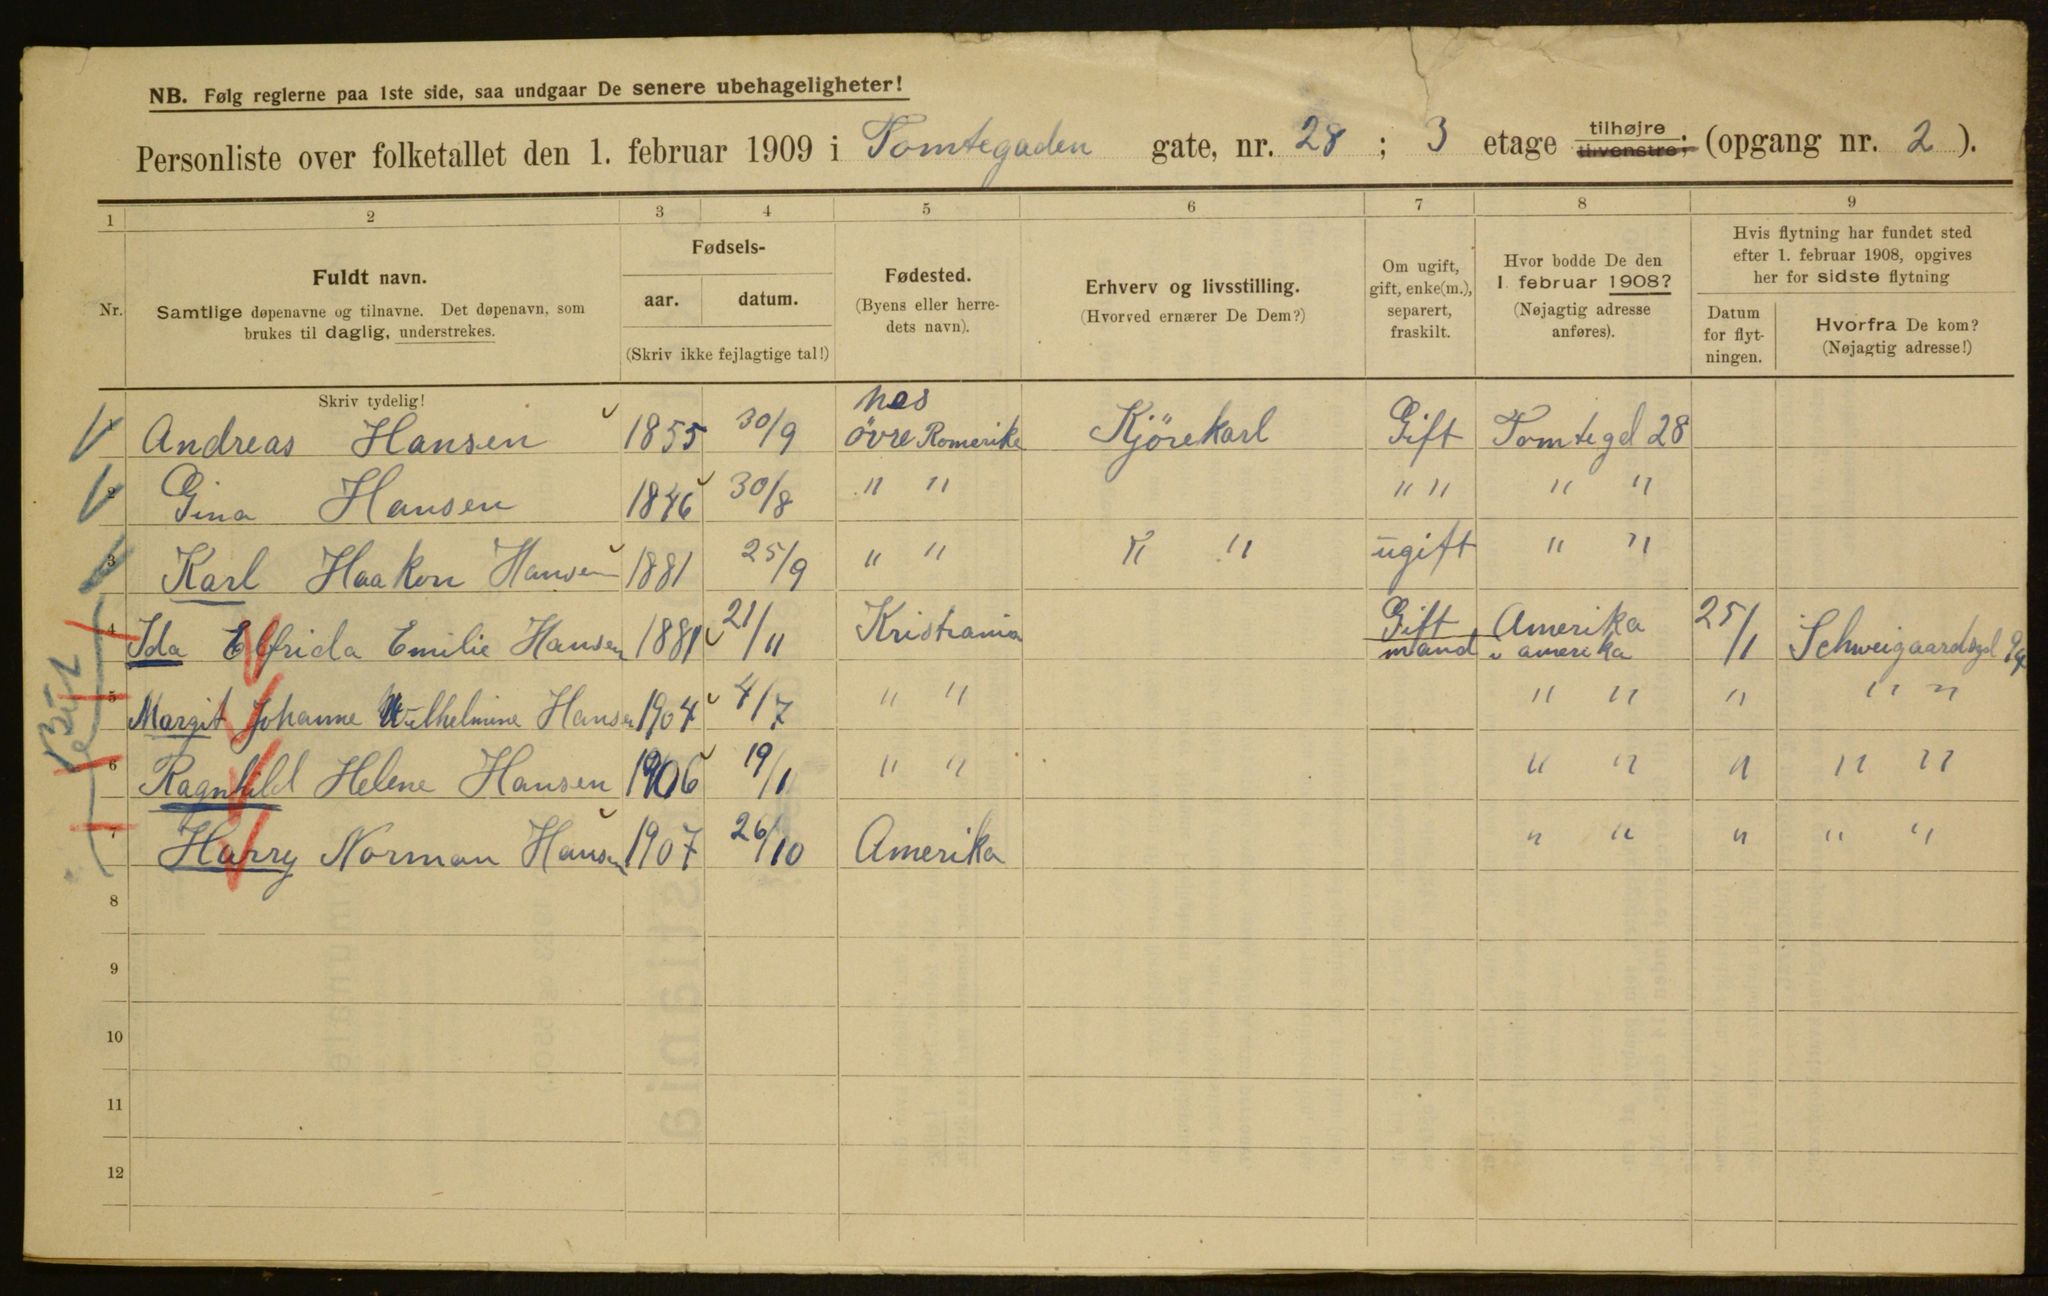 NB. Følg reglerne paa 1ste side, saa undgaar De senere ubehageligheter!
Personliste over folketallet den 1. februar 1909 i Tomtegaden gate, nr. 28 ; 3 etage tilhøjre tilvenstre; (opgang nr. 2 ).
1 2 3 4 5 6 7 8 9
Nr.
Fuldt navn.
Samtlige døpenavne og tilnavne. Det døpenavn, som
brukes til daglig, understrekes.
Fødsels-
aar. datum.
(Skriv ikke fejlagtige tal!)
Fødested.
(Byens eller herre-
dets navn).
Erhverv og livsstilling.
(Hvorved ernærer De Dem?)
Om ugift,
gift, enke(m.),
separert,
fraskilt.
Hvor bodde De den
1. februar 1908?
(Nøjagtig adresse
anføres).
Hvis flytning har fundet sted
efter 1. februar 1908, opgives
her for sidste flytning
Datum
for flyt-
ningen.
Hvorfra De kom?
(Nøjagtig adresse!)
Skriv tydelig!
Nes
1 Andreas Hansen 1855 30/9 övre Romerike Kjörekarl Gift Tomtegd 28
2 Gina Hansen 1846 30/8 " " " " " "
3 Karl Haakon Hansen 1881 25/9 " " " " ugift " "
4 Ida Elfrida Emilie Hansen 1881 21/11 Kristiania Gift Amerika 25/1 Schweigaardsgd
mand i amerika
5 Margit Johanne Wilhelmine Hansen 1904 4/7 " " " " " " "
6 Ragnhild Helene Hansen 1906 19/11 " " " " " " "
7 Harry Norman Hansen 1907 26/10 Amerika " " " " "
8
9
10
11
12